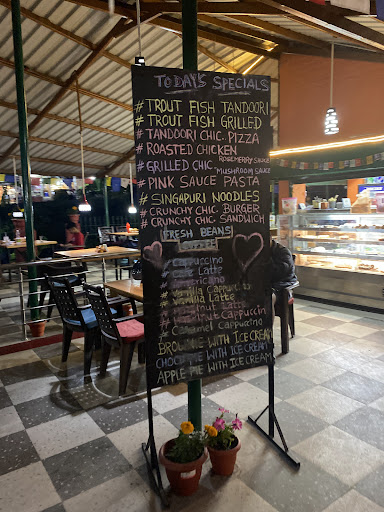 TODAY'S SPECIALS
# TROUT FISH TANDOORI
# TROUT FISH GRILLED
# TANDOORI CHIC. PIZZA
# ROASTED CHICKEN
# GRILLED CHIC. ROSEMERRY SAUCE
"MUSHROOM SAUCE
# PINK SAUCE PASTA
# SINGAPURI NOODLES
# CRUNCHY CHIC. BURGER
# CRUNCHY CHIC. SANDWICH
FRESH BEANS
COFFEE
# Cappuccino
# Cafe Latte
# Americano
# Vanilla Cappuccino
# Vanilla Latte
# Hazelnut Latte
# Hazelnut Cappuccino
# Caramel Cappuccino
BROWNIE WITH ICE CREAM
CHOCO PIE WITH ICE CREAM
APPLE PIE WITH ICE CREAM